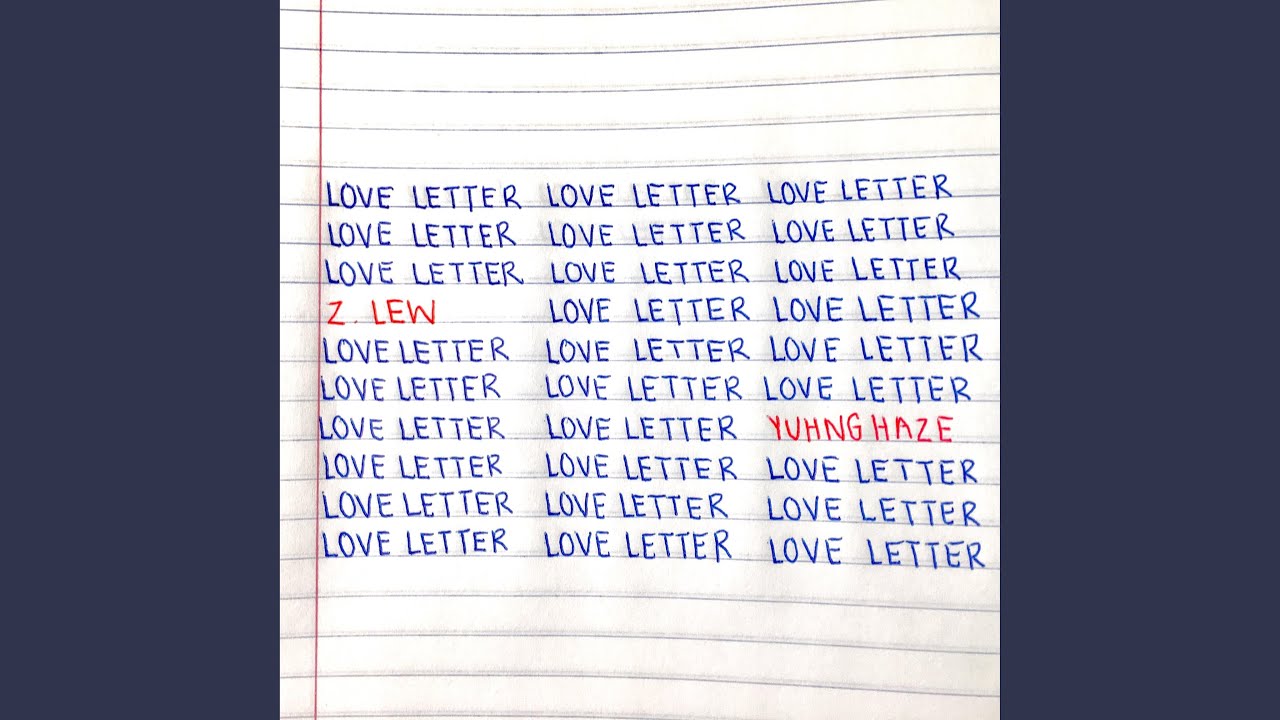 LOVE LETTER LOVE LETTER LOVE LETTER
LOVE LETTER LOVE LETTER LOVE LETTER
LOVE LETTER LOVE LETTER LOVE LETTER
Z. LEW LOVE LETTER LOVE LETTER
LOVE LETTER LOVE LETTER LOVE LETTER
LOVE LETTER LOVE LETTER LOVE LETTER
LOVE LETTER LOVE LETTER YUHNG HAZE
LOVE LETTER LOVE LETTER LOVE LETTER
LOVE LETTER LOVE LETTER LOVE LETTER
LOVE LETTER LOVE LETTER LOVE LETTER